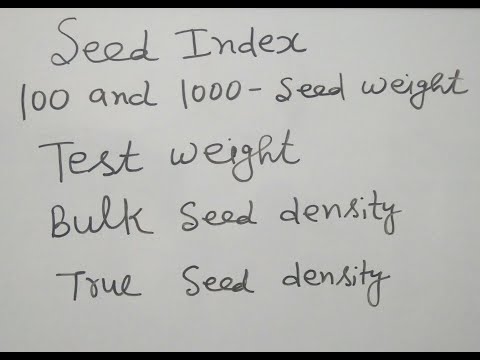 Seed Index
100 and 1000- Seed weight
Test weight
Bulk Seed density
True Seed density